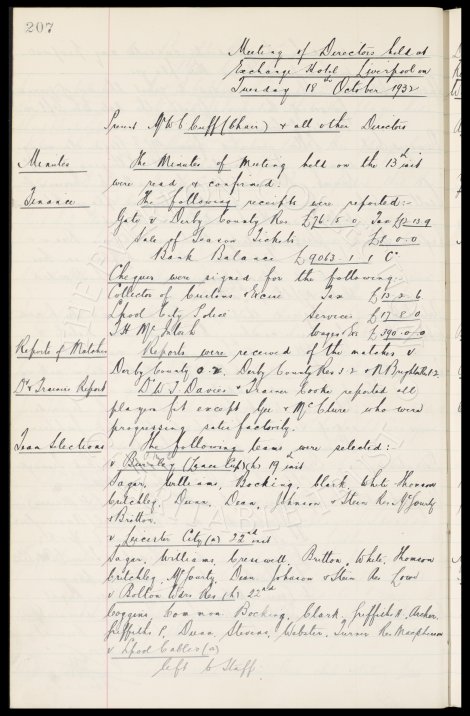 207
Meeting of Directors held at
Exchange Hotel Liverpool on
Tuesday 18th October 1932
Present Mr W C Cuff (Chair) & all other Directors
Minutes
The Minutes of Meeting held on the 13th inst
were read & confirmed.
Finance
The following receipts were reported:-
Gate v Derby County Res £76. 5. 0 Tax £12 13 9
Sale of Season Tickets £8. 0. 0
Bank Balance £9063. 1. 1 Cr
Cheques were signed for the following:-
Collector of Customs & Excise Tax £13. 2. 6
Lpool City Police Services £17. 8. 0
T H McIntosh Wages &c £390. 0. 0
Reports of Matches
Reports were received of the matches v
Derby County Derby County Res 3.2 v N Brighton 1.2
Dr & Trainers Report
Dr W J Davies & Trainer Cooke reported all
players fit except Gee & McClure who were
progressing satisfactorily.
Team Selections
The following teams were selected:
v Burnley (Lancs Cup) (h) 19th inst
Sagar, Williams, Bocking, Clark, White Thomson
Critchley, Dunn, Dean, Johnson & Stein Res McGourty
& Britton.
v Leicester City (a) 22nd inst
Sagar, Williams, Cresswell, Britton, White, Thomson
Critchley, McGourty, Dean Johnson & Stein Res Lowe
v Bolton Wdrs Res (h) 22nd
Coggins, Common Bocking, Clark, Griffiths T, Archer,
Griffiths P, Dunn, Stevens, Webster, Turner Res Macpherson
v Lpool Cables (a)
left to Staff.